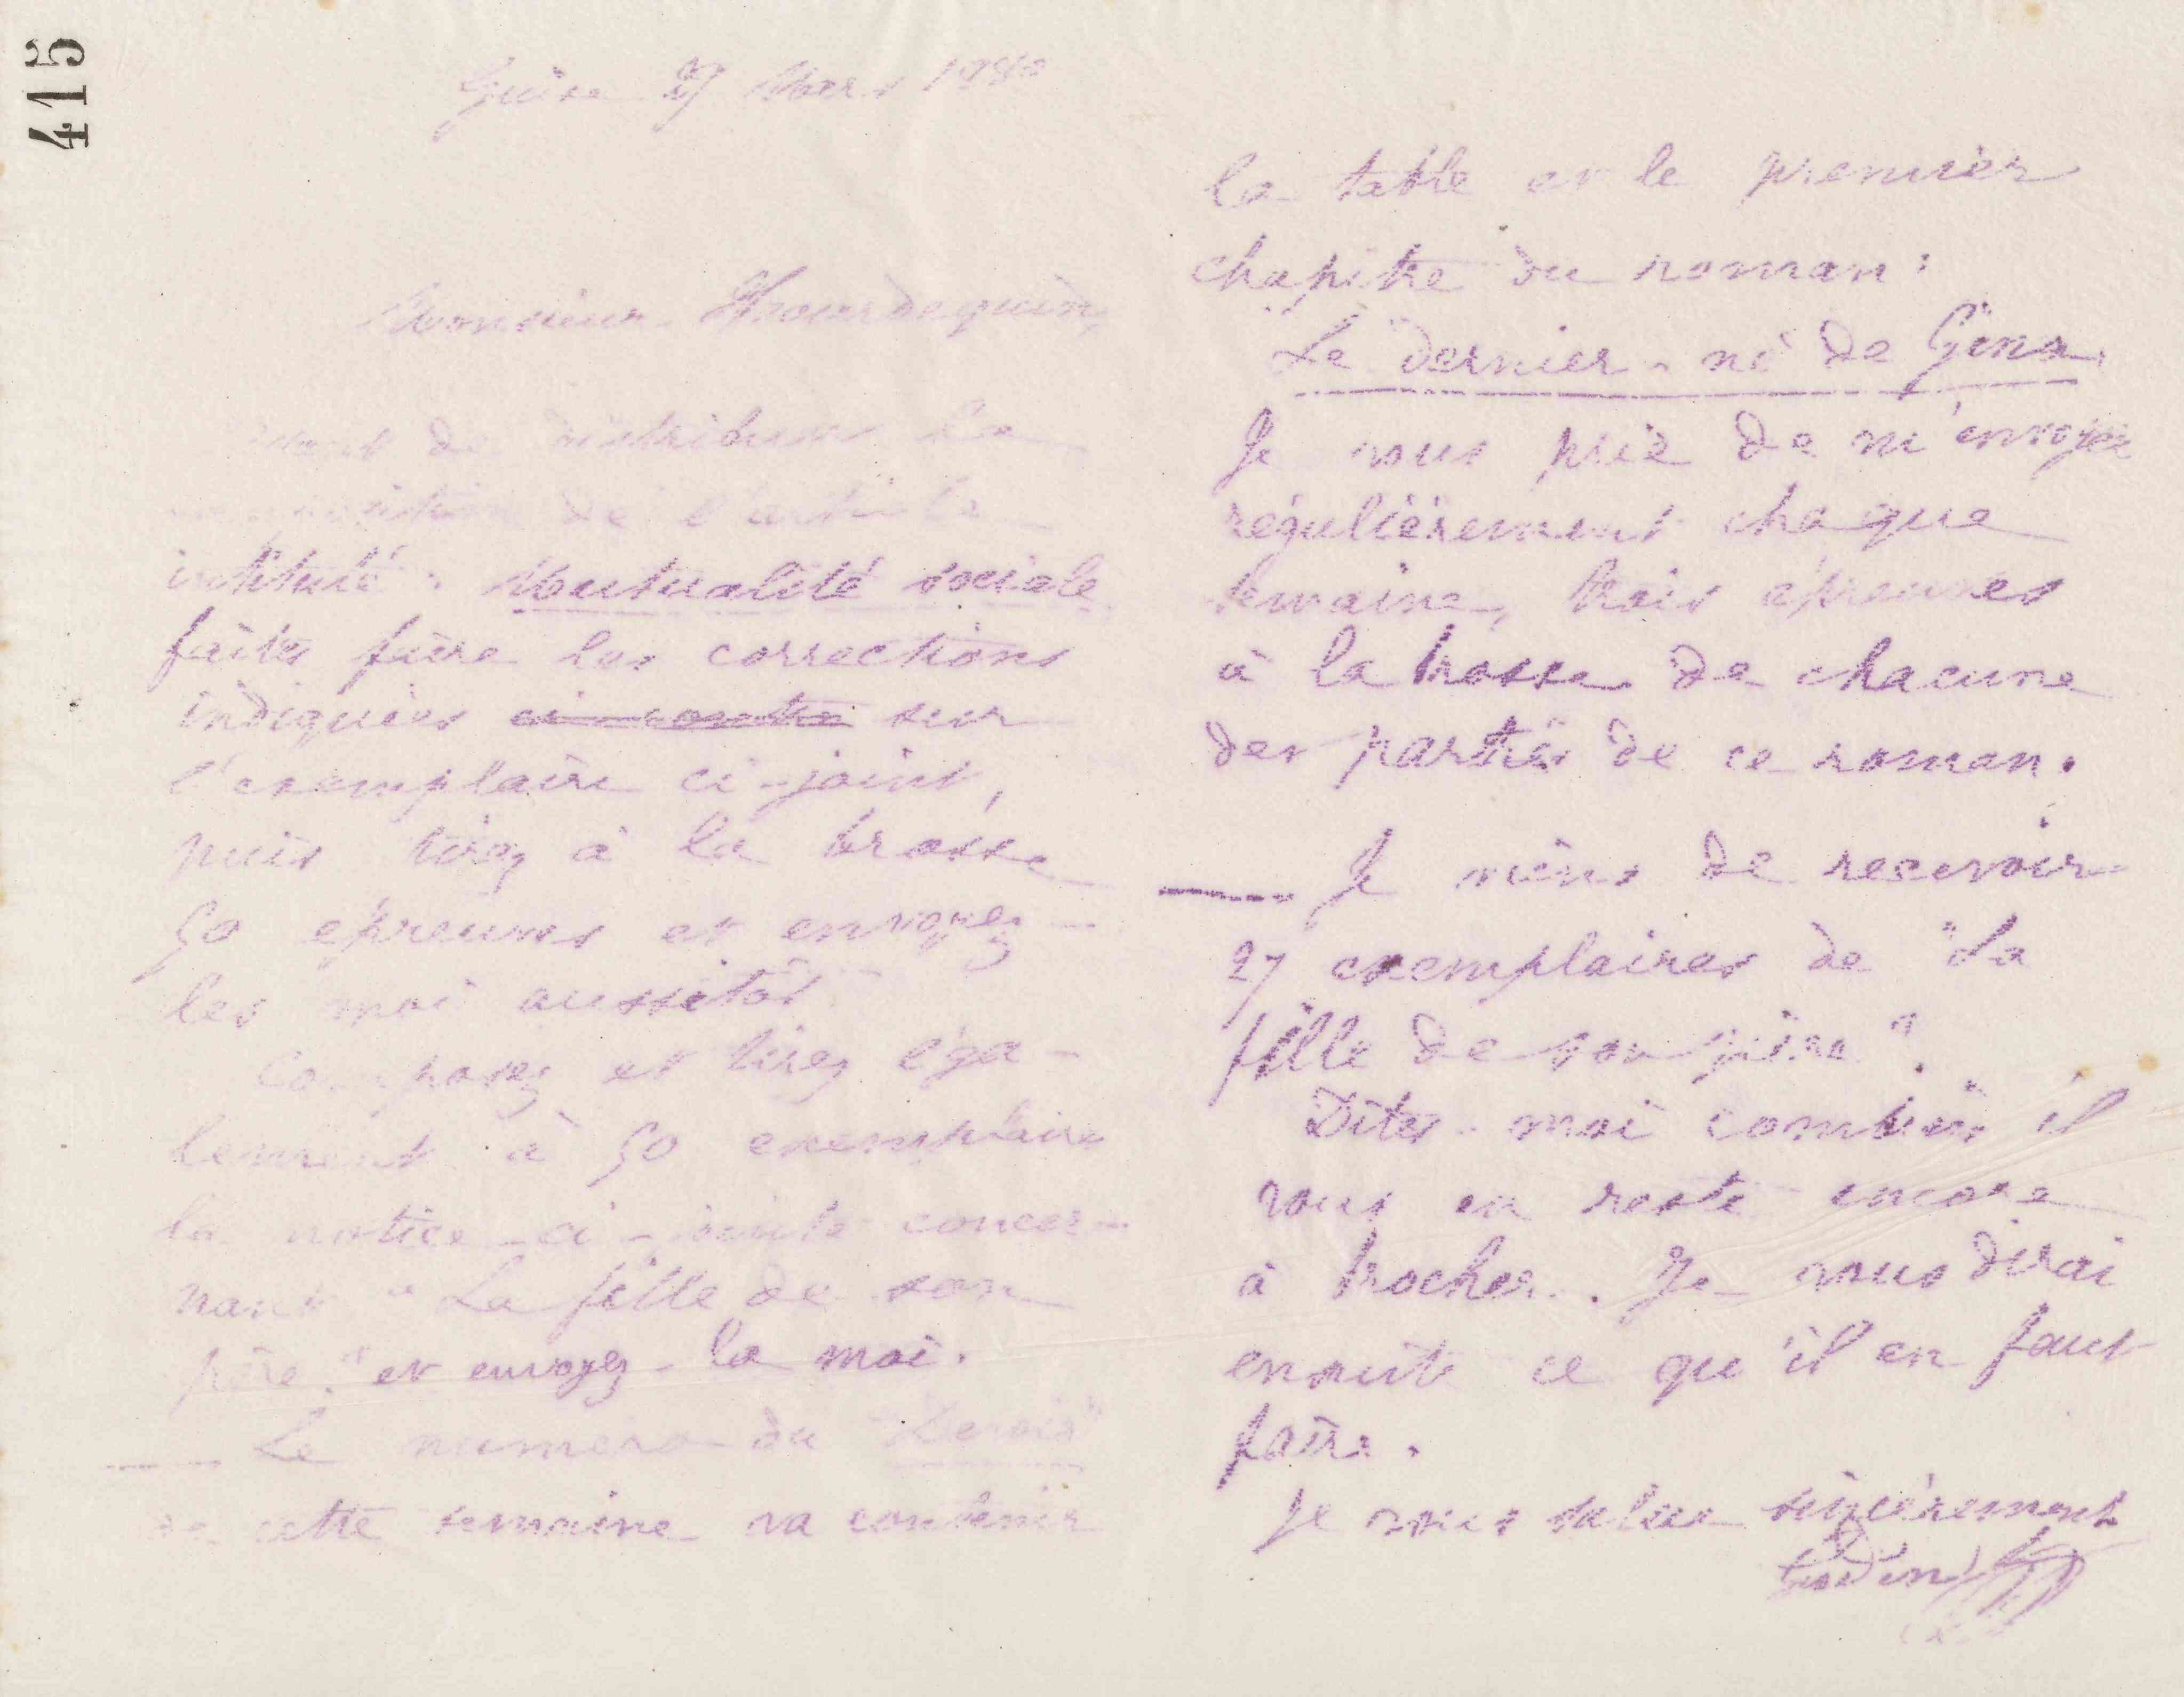 415
Guise 27 Mars 1880
Monsieur Hourdequin,
Avant de distribuer la
composition de l'article
intitulé : Mutualité sociale
faites faire les corrections
indiquées ci-contre sur
l'exemplaire ci-joint,
puis tirez à la brosse
50 épreuves et envoyez-
les moi aussitôt.
Composez et tirez éga-
lement à 50 exemplaires
la notice ci-jointe concer-
nant "La fille de son
père" et envoyez-la moi.
Le numéro du "Devoir"
de cette semaine va contenir
la table et le premier
chapitre du roman :
Le dernier-né de
Je vous prie de m'envoyer
régulièrement chaque
semaine, trois épreuves
à la brosse de chacune
des parties de ce roman.
Je viens de recevoir
27 exemplaires de "La
fille de son père".
Dites-moi combien il
vous en reste encore
à brocher. Je vous dirai
ensuite ce qu'il en faut
faire.
Je vous salue sincèrement
Godin